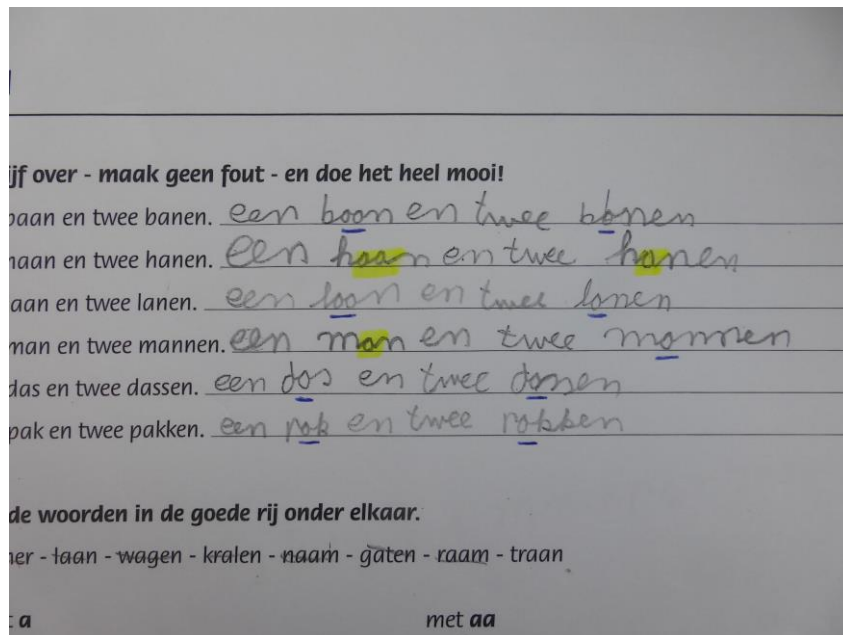 ijf over - maak geen fout - en doe het heel mooi!
baan en twee banen. een boon en twee bonen
haan en twee hanen. een haan en twee hanen
aan en twee lanen. een loon en twee lonen
man en twee mannen. een man en twee monnen
das en twee dassen. een dos en twee
pak en twee pakken. een rok en twee rokken
de woorden in de goede rij onder elkaar.
er - taan - wagen - kralen - naam - gaten - raam - traan
t a met aa